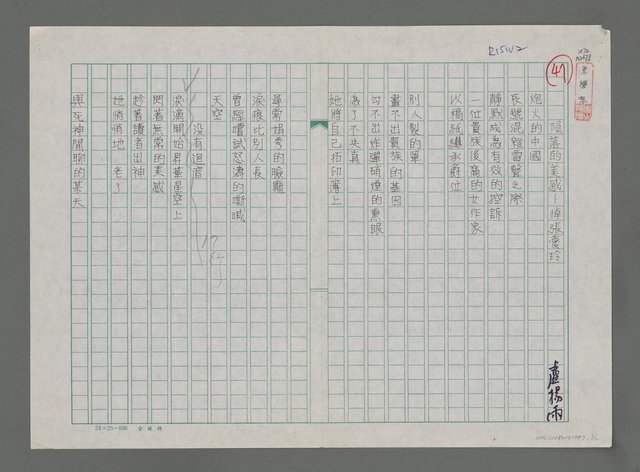 R15W2
47
頃落的美感－悼張愛玲
煙火的中國
哀號混雜雷聲之際
靜默成為有效的控訴
一位貴族後裔的女作家
以稿紙繼承爵位
別人製的筆
畫不出貴族的基因
勾不出炸彈硝煙的熏眼
為了不失真
她將自己拓印蓋上
尋常娟秀的臉龐
淚痕比別人長
曾經嚐試怒濤的嘶喊
天空
沒有迴音
淚滴開始昇華星空上
閃著無常的美感
趁著讀者出神
她悄悄地 老了
與死神閒聊的某天
17行
盧楊雨
24×25=600